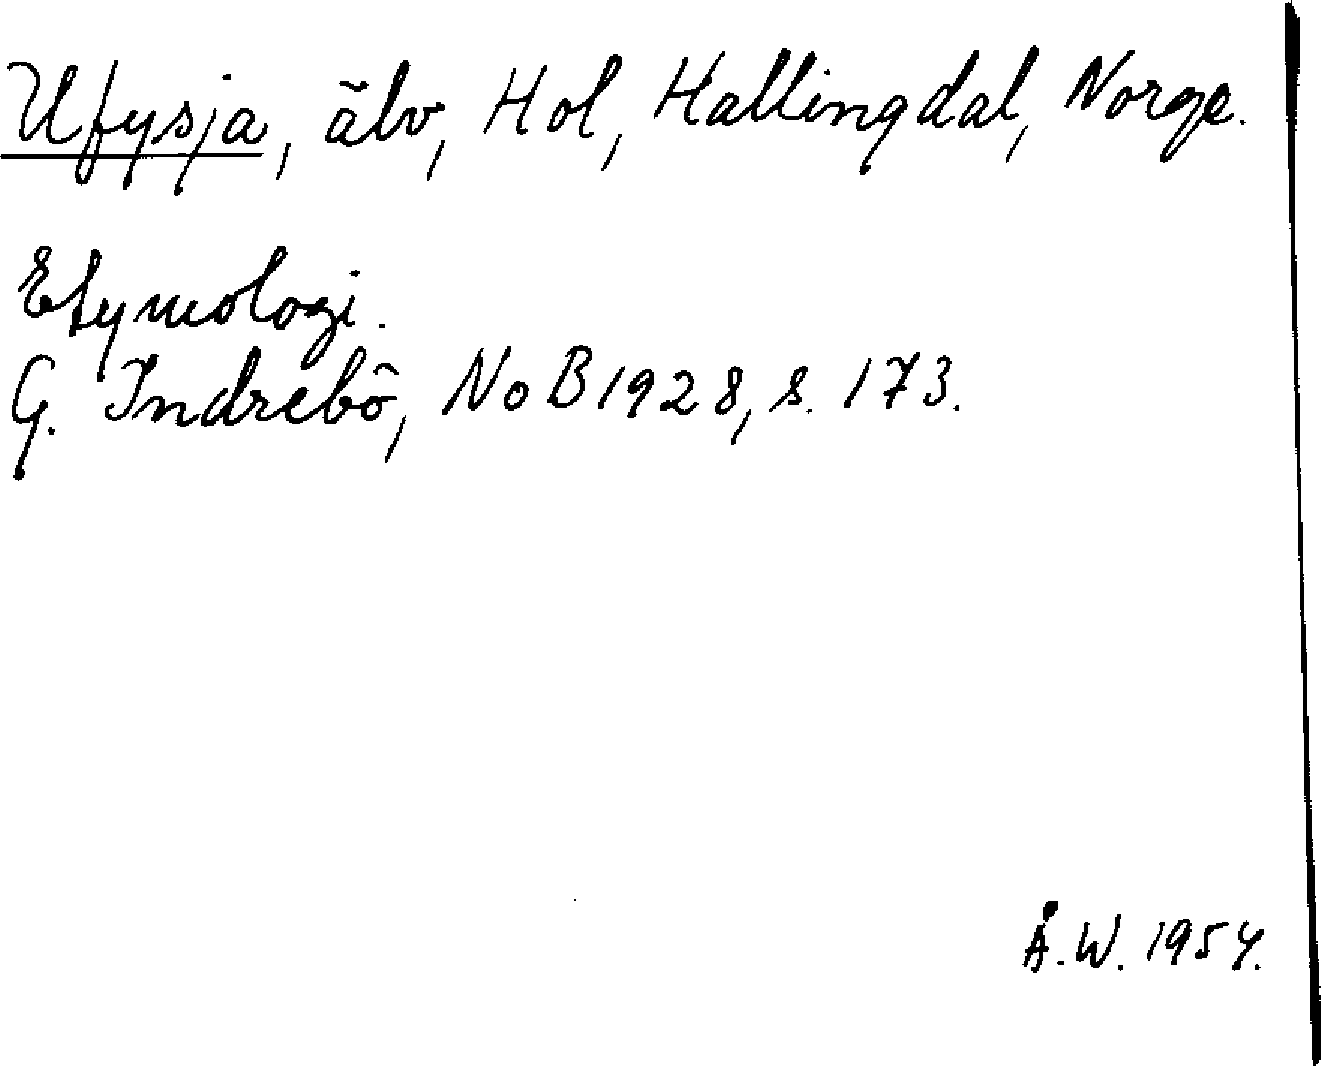 Ufysja, älv, Hol, Hallingdal, Norge.
Etymologi.
G. Indrebö, NoB 1928, s. 173.
Å.W. 1954.